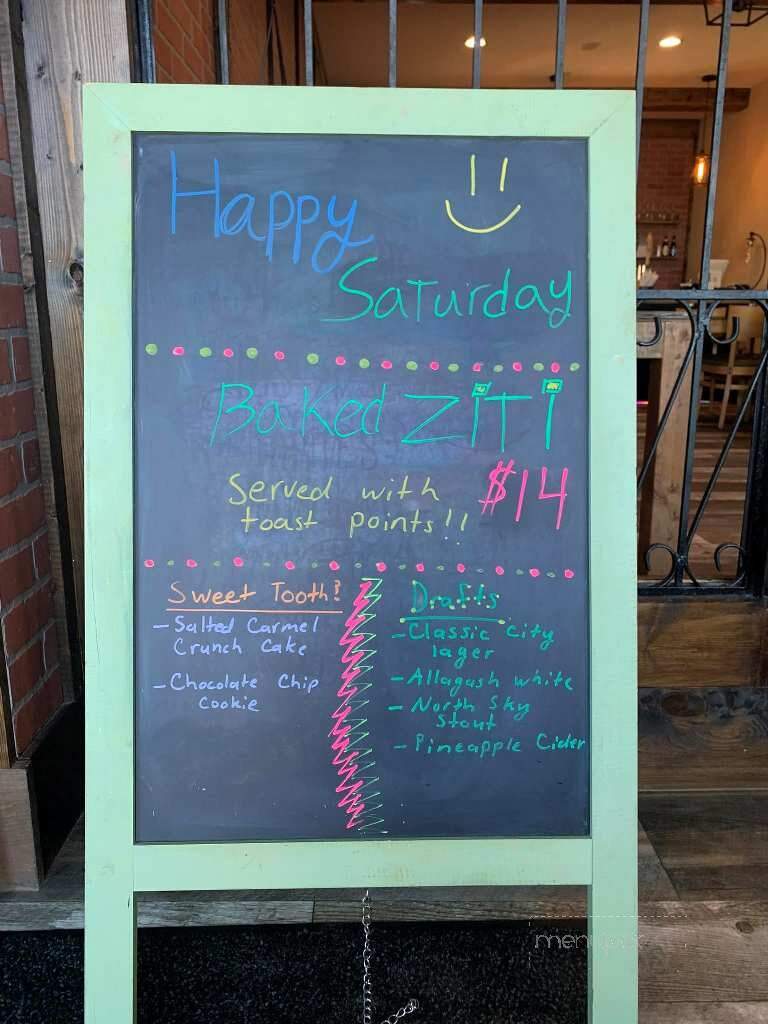 Happy
Saturday
Baked ZiTi
$14
Served with
toast points!!
Sweet Tooth?
- Salted Carmel
Crunch Cake
- Chocolate Chip
Cookie
Drafts
- Classic City
lager
- Allagash white
- North Sky
Stout
- Pineapple Cider